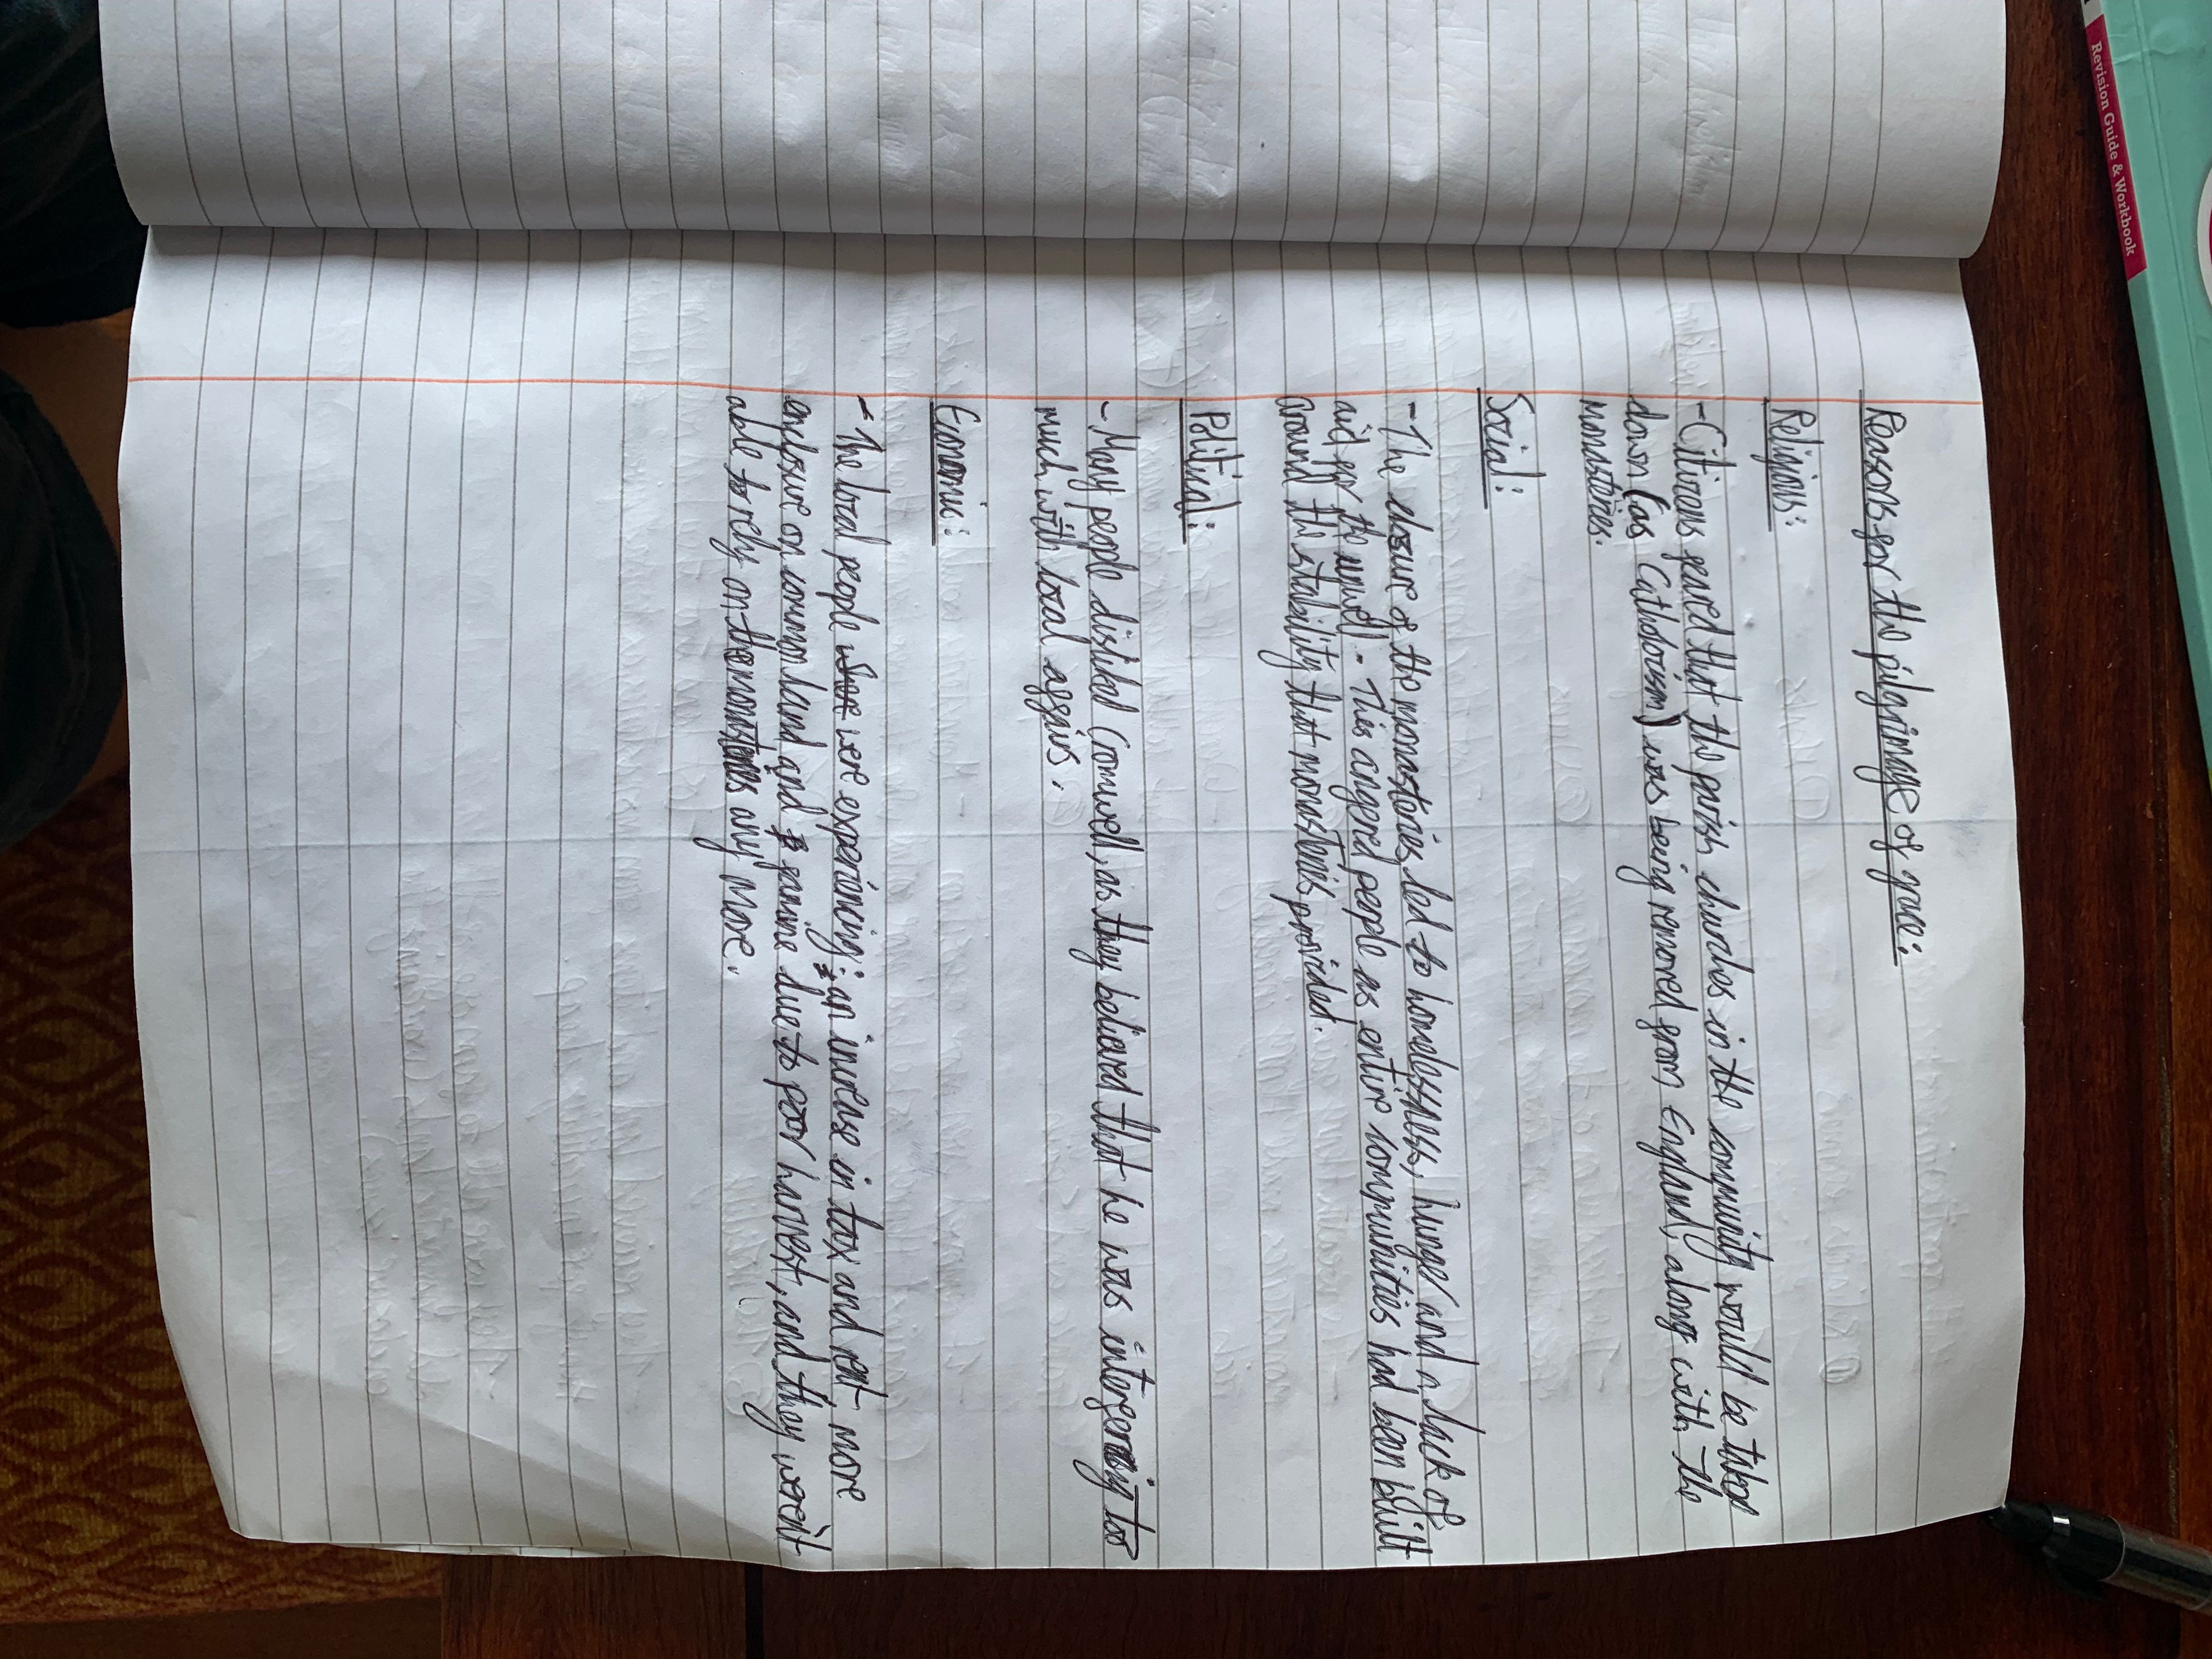 Reasons for the pilgrimage of grace:
Religious:
- Citizens feared that the parish churches in the community would be taked
down (as Catholocism) was being removed from England, along with the
monasteries.
Social:
- The closure of the monasteries led to homelessness, hunger and a lack of
aid for the unwell - This angered people as entire communities had been built
around the stability that monasteries provided.
Political:
- Many people disliked Cromwell, as they believed that he was interfering too
much with local affairs.
Economic:
- The local people were experiencing: an increase in tax and rent, more
enclosure on common land and famine due to poor harvest, and they weren't
able to rely on the monasteries any more.
Revision Guide & Workbook